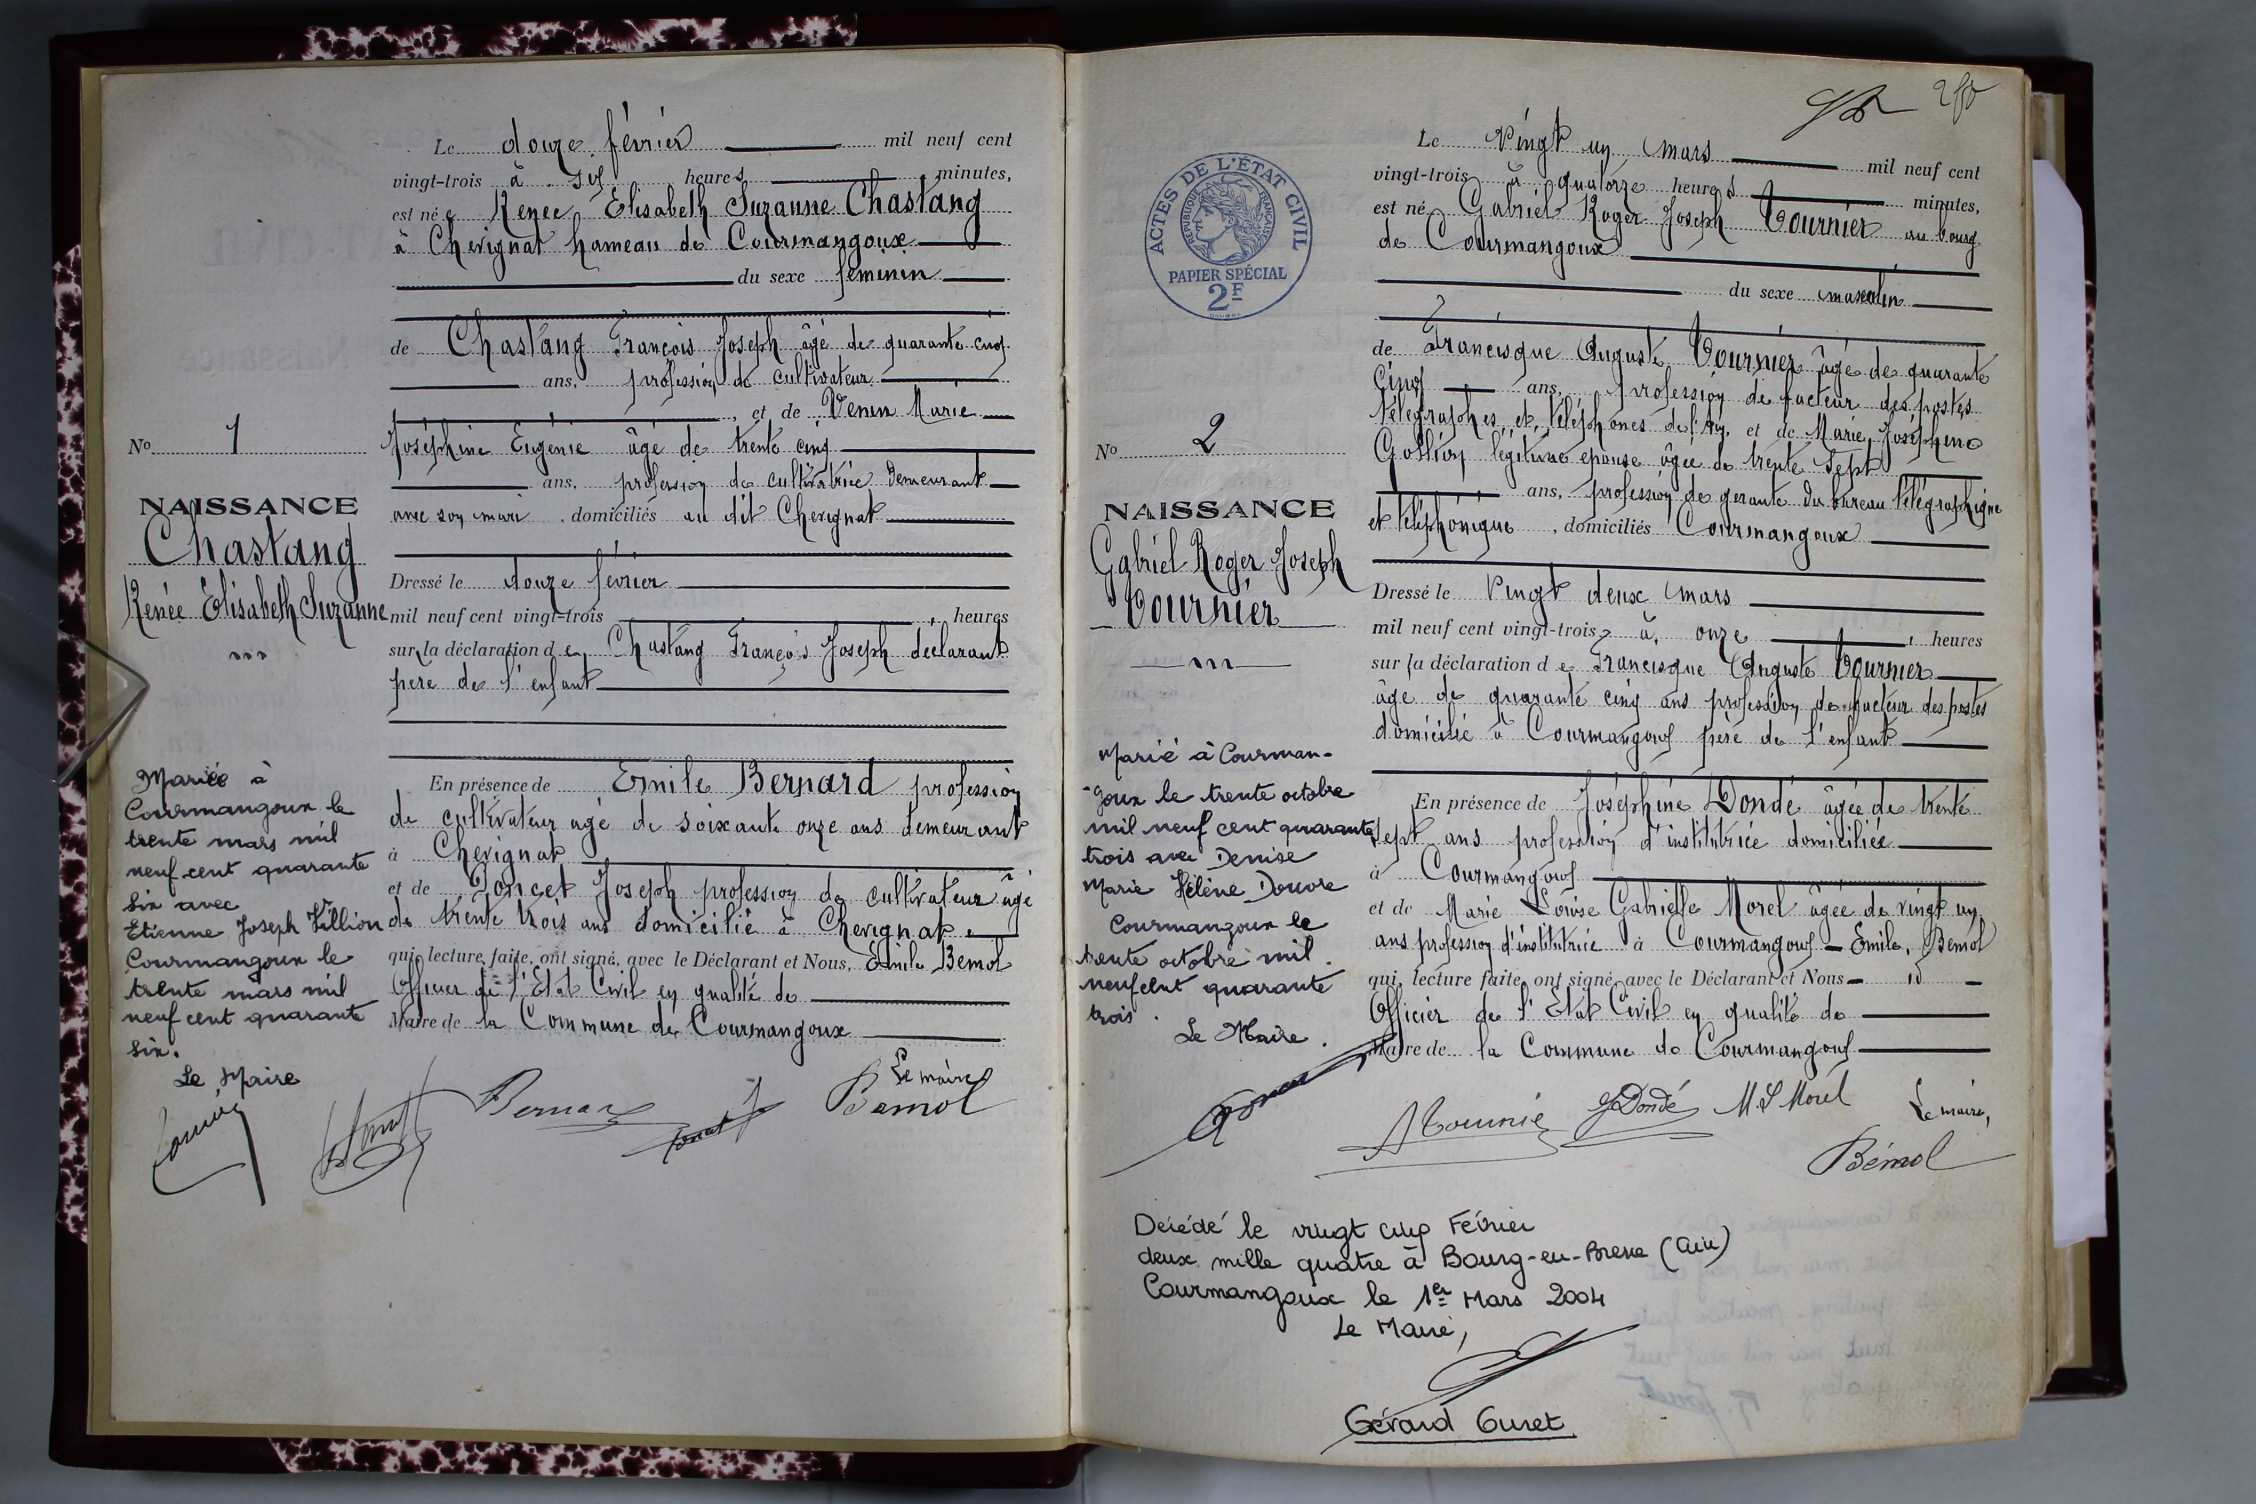 Le douze février mil neuf cent
vingt-trois à six heures minutes,
est née Renée Elisabeth Suzanne Chastang
à Chevignat hameau de Courmangoux
du sexe féminin
de Chastang François Joseph âgé de quarante cinq
ans, profession de cultivateur
, et de Venin Marie
Joséphine Eugénie âgé de trente cinq
ans, profession de cultivatrice demeurant
avec son mari , domiciliés au dit Chevignat
Dressé le douze février
mil neuf cent vingt-trois , heures
sur la déclaration de Chastang François Joseph déclarant
père de l'enfant
En présence de Emile Bernard profession
de cultivateur agé de soixante onze ans demeurant
à Chevignat
et de Poncet Joseph profession de cultivateur âgé
de trente trois ans domicilié à Chevignat
qui, lecture faite, ont signé, avec le Déclarant et Nous, Emile Bemol
Officier de l'Etat Civil en qualité de
Maire de la Commune de Courmangoux
Le maire
Bernard
Bemol
No 1
NAISSANCE
Chastang
Renée Elisabeth Suzanne
Mariée à
Courmangoux le
trente mars mil
neuf cent quarante
six avec
Etienne Joseph Villion
Courmangoux le
trente mars mil
neuf cent quarante
six.
Le Maire
250
Le vingt un mars mil neuf cent
vingt-trois à quatorze heures minutes,
est né Gabriel Roger Joseph Tournier au bourg
de Courmangoux
du sexe masculin
de Francisque Auguste Tournier âgé de quarante
cinq ans, profession de facteur des postes
télégraphes et téléphones de l'Ain, et de Marie Joséphine
légitime épouse âgée de trente sept
ans, profession de gérante du bureau télégraphique
et téléphonique , domiciliés Courmangoux
Dressé le vingt deux mars
mil neuf cent vingt-trois à onze , heures
sur la déclaration de Francisque Auguste Tournier
âgé de quarante cinq ans profession de facteur des postes
domicilié à Courmangoux père de l'enfant
En présence de Joséphine Dondé âgée de trente
sept ans profession d'institutrice domiciliée
à Courmangoux
et de Marie Louise Gabrielle Morel âgée de vingt un
ans profession d'institutrice à Courmangoux Emile Bémol
qui, lecture faite, ont signé, avec le Déclarant et Nous
Officier de l'Etat Civil en qualité de
Maire de la Commune de Courmangoux
ATournier
Dondé
M.L Morel
Le maire,
Bémol
ACTES DE L'ÉTAT CIVIL
RÉPUBLIQUE FRANÇAISE
PAPIER SPÉCIAL
2F
No 2
NAISSANCE
Gabriel Roger Joseph
Tournier
Marié à Courman-
-goux le trente octobre
mil neuf cent quarante
trois avec Denise
Marie Hélène Douvre
Courmangoux le
trente octobre mil
neufcent quarante
trois.
Le Maire.
Décédé le vingt cinq Février
deux mille quatre à Bourg-en-Bresse (Ain)
Courmangoux le 1er Mars 2004
Le Maire,
Gérard Guret